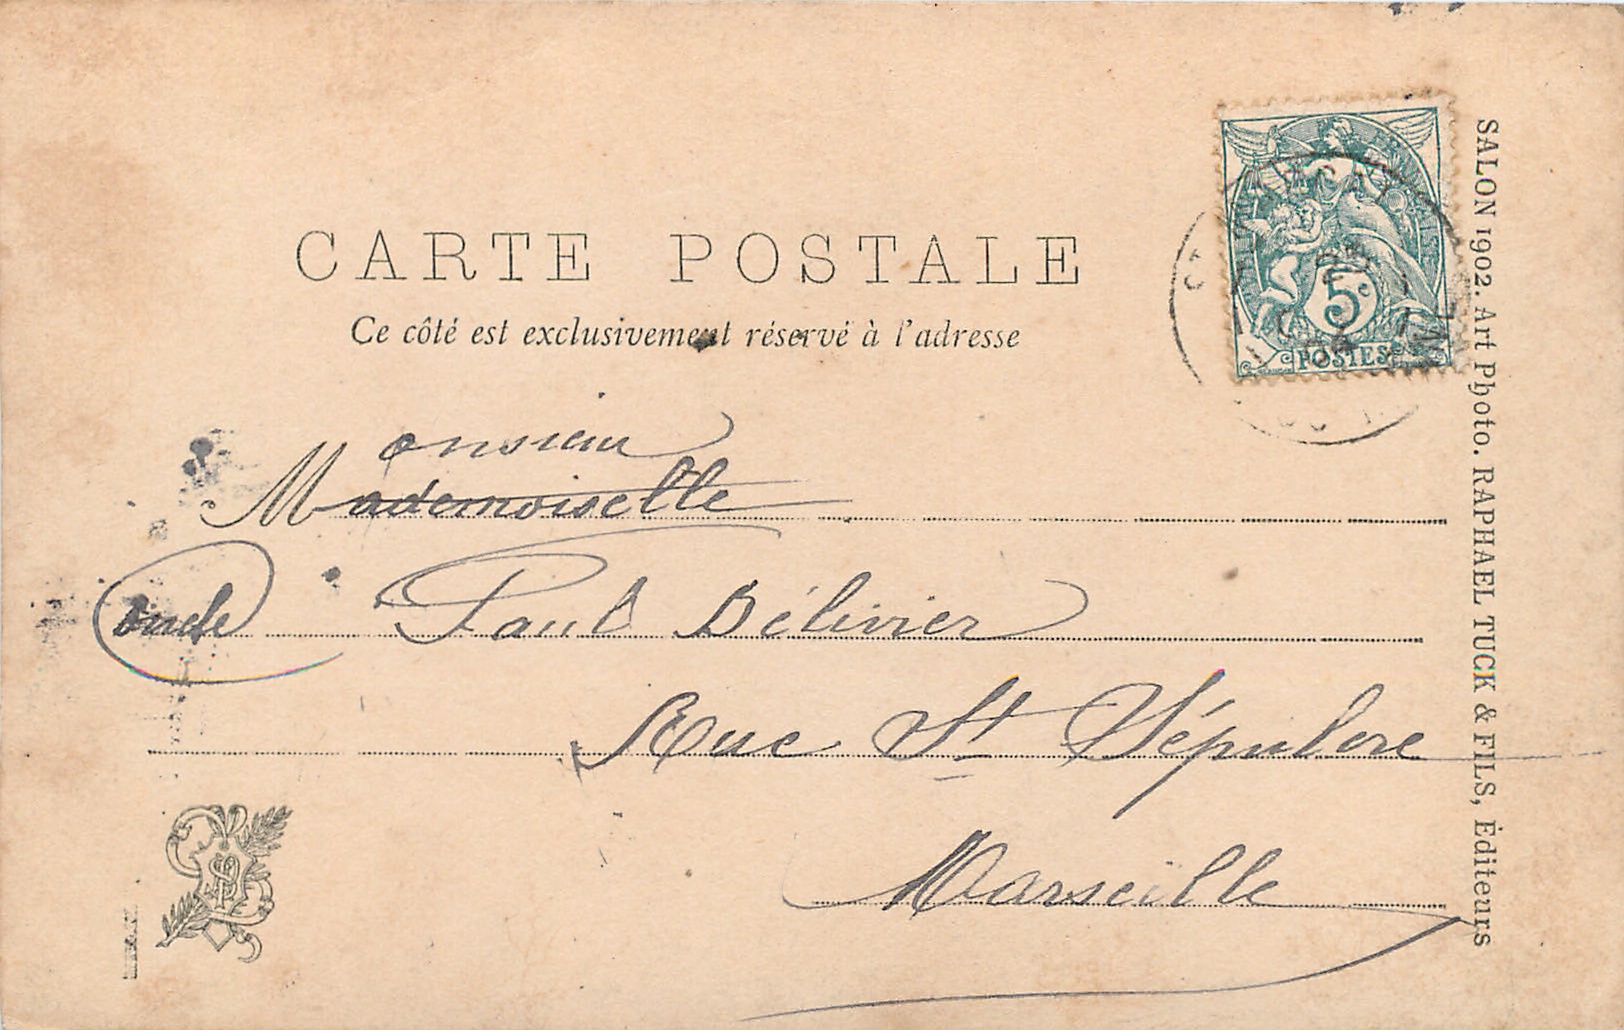 CARTE POSTALE
Ce côté est exclusivement réservé à l'adresse
5c
POSTES
onsieur
Mademoiselle
oncle Paul Délivier
Rue St Sépulcre
Marseille
SALON 1902. Art Photo. RAPHAEL TUCK & FILS, Éditeurs